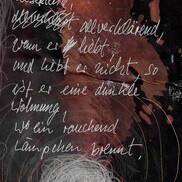 allverklärend,
wann er liebt
und liebt er nicht, so
ist er eine dunkle
Wohnung!
wo ein rauchend
Lämpchen brennt,